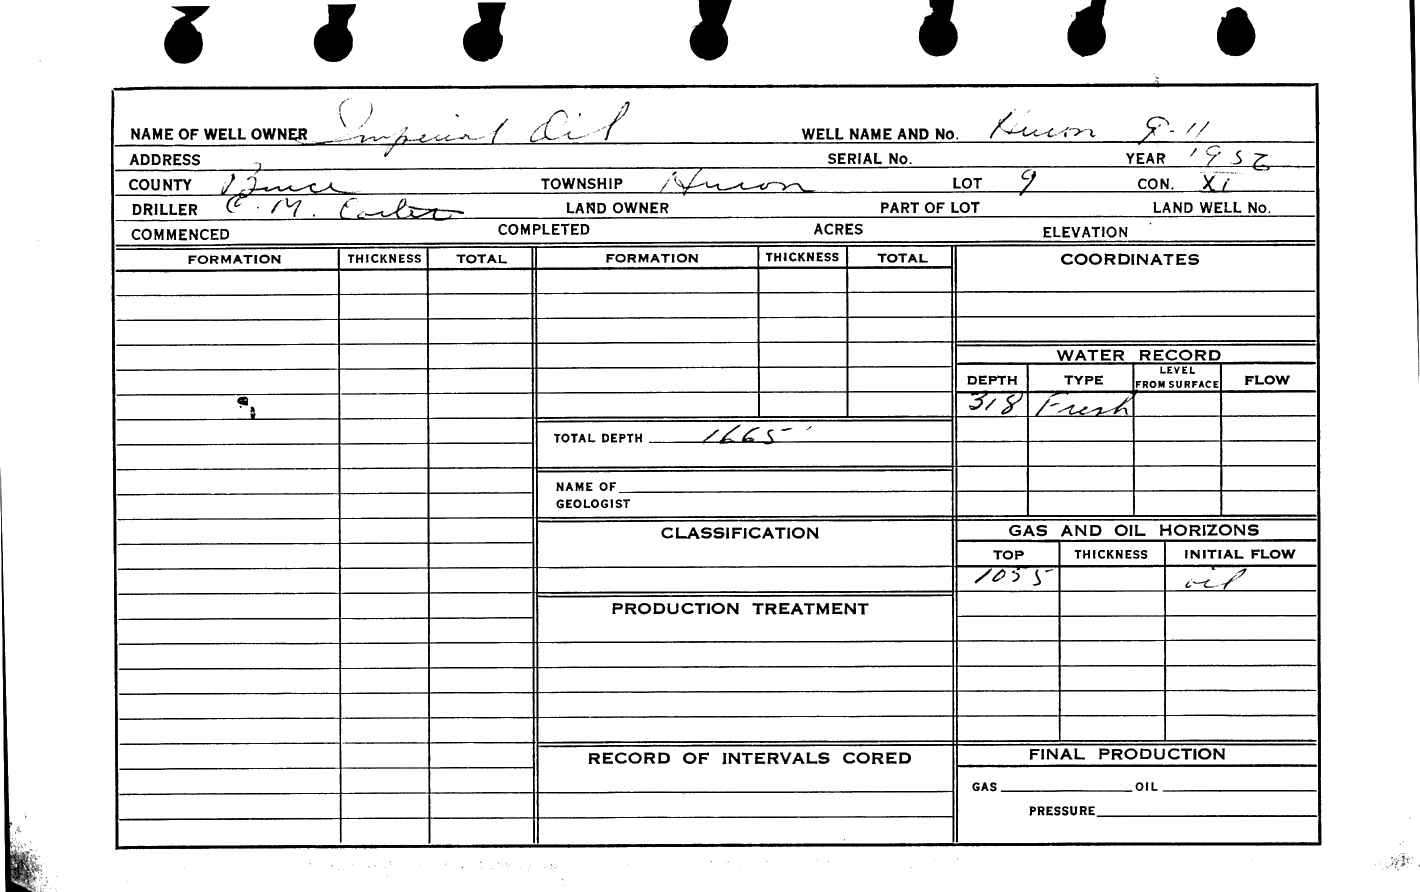 NAME OF WELL OWNER Imperial Oil WELL NAME AND No. Huron 9-11
ADDRESS SERIAL No. YEAR 1956
COUNTY Bruce TOWNSHIP Huron LOT 9 CON. XI
DRILLER C. M. Carter LAND OWNER PART OF LOT LAND WELL No.
COMMENCED COMPLETED ACRES ELEVATION
FORMATION THICKNESS TOTAL FORMATION THICKNESS TOTAL COORDINATES
WATER RECORD
DEPTH TYPE LEVEL FROM SURFACE FLOW
318 Fresh
TOTAL DEPTH 1665'
NAME OF
GEOLOGIST
CLASSIFICATION
GAS AND OIL HORIZONS
TOP THICKNESS INITIAL FLOW
1055 oil
PRODUCTION TREATMENT
RECORD OF INTERVALS CORED
FINAL PRODUCTION
GAS OIL
PRESSURE